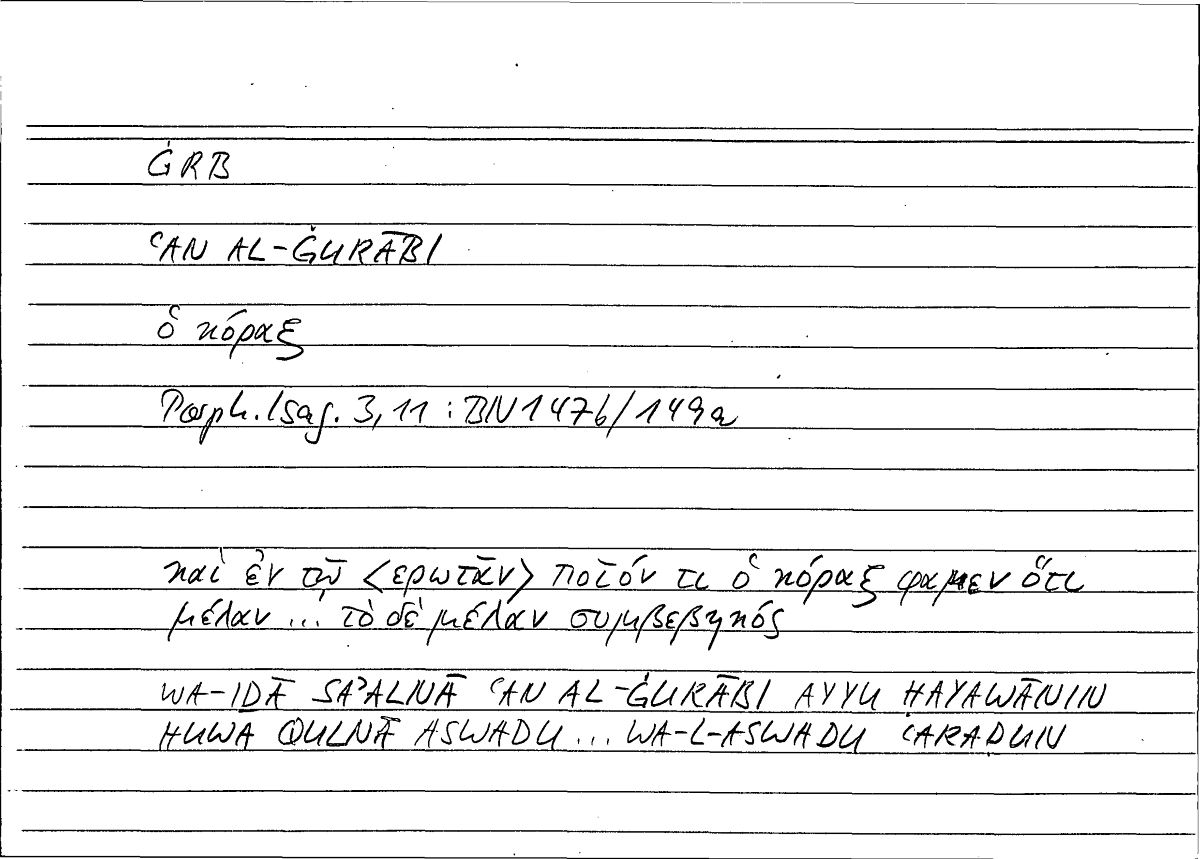 ĠRB
ʿAN AL-ĠURĀBI
ὁ κόραξ
Porph. Isag. 3,11 : BN 147b/149a
καὶ ἐν τῷ <ερωτᾶν> ποῖόν τι ὁ κόραξ φαμεν ὅτι
μέλαν ... τὸ δὲ μέλαν συμβεβηκός
WA-IḎĀ SAʾALNĀ ʿAN AL-ĠURĀBI AYYU HAYAWĀNIN
HUWA QULNĀ ASWADU ... WA-L-ASWADU ʿARAḌUN